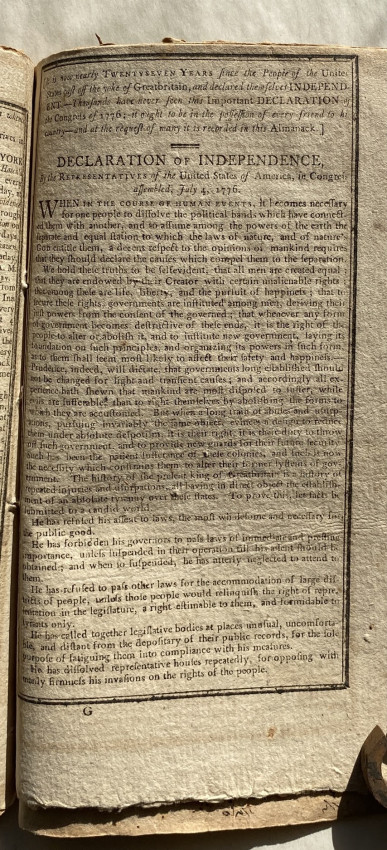 [IT is now nearly TWENTYSEVEN YEARS since the People of the United
States cast off the yoke of Greatbritain, and declared themselves INDEPEND
ENT.—Thousands have never seen this Important DECLARATION of
the Congress of 1776; it ought to be in the possession of every friend to his
Country—and at the request of many it is recorded in this Almanack.]
DECLARATION OF INDEPENDENCE,
by the REPRESENTATIVES of the United States of America, in Congress
assembled, July 4, 1776.
WHEN IN THE COURSE OF HUMAN EVENTS, it becomes necessary
for one people to dissolve the political bands which have connect-
ed them with another, and to assume among the powers of the earth the
separate and equal station to which the laws of nature, and of nature's
God entitle them, a decent respect to the opinions of mankind requires
that they should declare the causes which compel them to the separation.
We hold these truths to be selfevident; that all men are created equal
that they are endowed by their Creator with certain unalienable rights
that among these are life, liberty, and the pursuit of happiness; that to
secure these rights, governments are instituted among men, deriving their
just powers from the consent of the governed; that whenever any form
of government becomes destructive of these ends, it is the right of the
people to alter or abolish it, and to institute new government, laying its
foundation on such principles, and organizing its powers in such form,
as to them shall seem most likely to affect their safety and happiness.—
Prudence, indeed, will dictate, that governments long established should
not be changed for light and transient causes; and accordingly all ex-
perience hath shewn that mankind are most disposed to suffer, while
evils are sufferable, than to right themselves by abolishing the forms to
which they are accustomed. But when a long train of abuses and usurp-
ations, pursuing invariably the same object, evinces a design to reduce
them under absolute despotism, it is their right, it is their duty, to throw
off such government, and to provide new guards for their future security
Such has been the patient sufferance of these colonies, and such is now
the necessity which constrains them to alter their former systems of gov-
ernment. The history of the present king of Greatbritain is a history of
repeated injuries and usurpations, all having in direct object the establish-
ment of an absolute tyranny over these states. To prove this, let facts be
submitted to a candid world.
He has refused his assent to laws, the most wholesome and necessary for
the public good.
He has forbidden his governors to pass laws of immediate and pressing
importance, unless suspended in their operation till his assent should be
obtained; and when so suspended, he has utterly neglected to attend to
them.
He has refused to pass other laws for the accommodation of large dis-
tricts of people, unless those people would relinquish the right of repre-
sentation in the legislature, a right estimable to them, and formidable to
tyrants only.
He has called together legislative bodies at places unusual, uncomforta-
ble, and distant from the depositary of their public records, for the sole
purpose of fatiguing them into compliance with his measures.
He has dissolved representative houses repeatedly, for opposing with
manly firmness his invasions on the rights of the people.
G